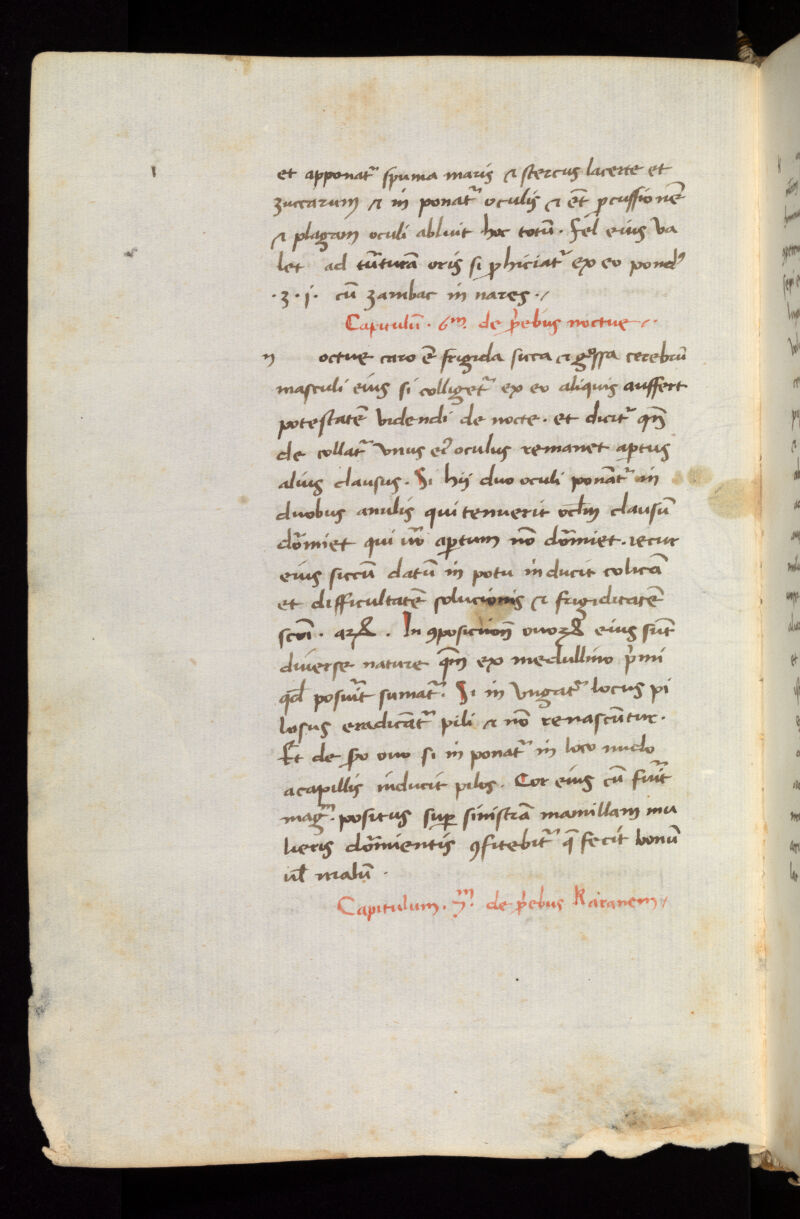 et apponatr̃ spuma maris ⁊ stercus lacerte et
zuccarum ⁊ in ponatr̃ oculis ⁊ eт̃ ꝑcussionẽ
⁊ plagam oculi abluit hoc totũ. Fel eius va
let ad tũturã oris si ꝓhiciatr̃ ex eo pondꝰ
.ʒ.j. cũ zambac in nares./
Capitulũ. 6m̃. de p̃ebus noctue
n octue caro ẽ frigida sicca ⁊ gͦssa cerebrũ
masculi eius si colligetr̃ ex eo aliquis auffert
potestatẽ videndi de nocte. et dicitr̃ qm̃
de collatr̃ vnus eiꝰ oculus remanet aꝑtus
alius clausus. Si hij duo oculi ponãtr̃ in
duobus anulis qui tenuerit clausũ
dormiet qui vͦ aꝑtum nõ dormiet. iecur
eius siccũ datũ in potu inducit colicã
et difficultatẽ solucionis ⁊ frigiditatẽ
In ꝯposicion̄ ouoꝝ eius sũt
diuerse nature qm̃ ex medullino p̃mi
qd̃ posuit̃ sumatr̃. Si in vngatr̃ locus pi
losus eradicãtr̃ pili ⁊ nõ renascũtur.
Et de sͦo ouo si in ponatr̃ in loco nudo
a capillis inducit pilos. Cor eius cũ fuit̃
mag̃. positus suꝑ sinistrã mamillam mu
lieris dormientis ꝯfitebitr̃ q̃ fecit bonũ
ul̃ malũ.
Capitulum. 7m̃. de p̃ebus Karanem